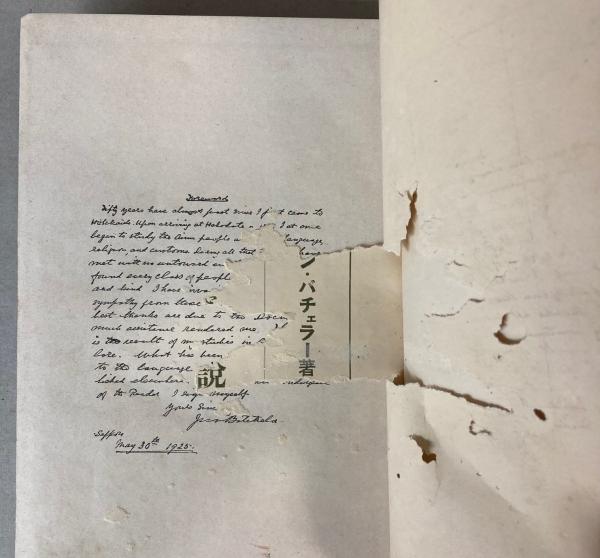 Foreword
Fifty years have almost past since I first came to
Hokkaido. Upon arriving at Hakodate I at once
began to study the Ainu people language,
religion and customs. During all that
met with no untoward
found every class of people
and kind I have
sympathy from these
best thanks are due to the
much assistance rendered me
is the result of my studies in
lore. What has been
to the language
lished elsewhere.
of the Reader I sign myself
Yours Sinc
Sapporo
May 30th 1925.
ン・バチェラー著
説